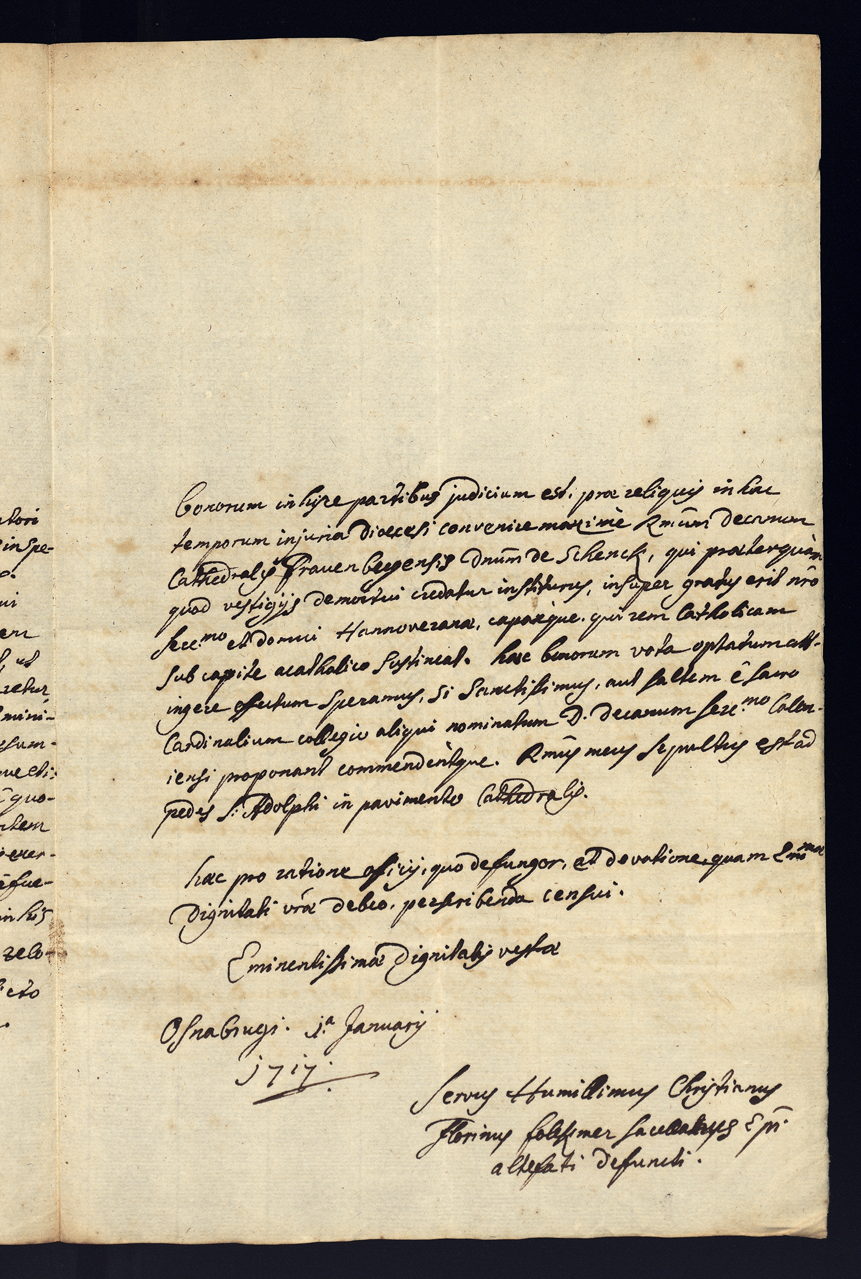 atori
in spe-
o.
ui
em
l, ut
retur
mini-
sum-
que eti:
quo-
utem
exer-
fue-
in his
zelo-
cto
bonorum in hisce partibus judicium est, præ reliquis in hac
temporum injuria Dioecesi convenire maximè Rm̃um Decanum
Cathedralis Frauenbergensis Dnũm de Schenck, qui præterquàm
quod vestigijs demortui credatur institurus, insuper gratus erit nr̃o
Sere:mo et domui Hannoveranæ, capaxque. qui rem Catholicam
sub capite acatholico sustineat. hæc bonorum vota optatum att-
ingere effectum speramus, si Sanctissimus, aut saltem è sacro
Cardinalium collegio aliqui nominatum D. Decanum Sere:mo Colon-
iensi proponant commendentque. Rm̃us meus sepultus est ad
pedes S: Adolphi in pavimento Cathedralis.
hæc pro ratione officij, quo defungor, et devotione, quam Em̃mæ
Dignitati vr̃æ debeo, perscribenda censui.
Eminentissimæ Dignitatis vestræ
Osnabrugi. 1.a Januarij
1717.
Servus Humillimus Christianus
Florinus Sacellanus Ep̃i
altefati defuncti.